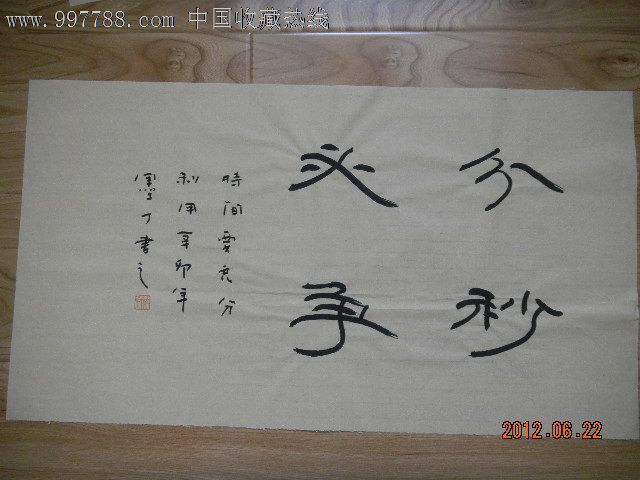 www.997788.com 中国收藏热线
分秒
必争
時间要充分
利用辛卯年
墨丁書之
2012.06.22